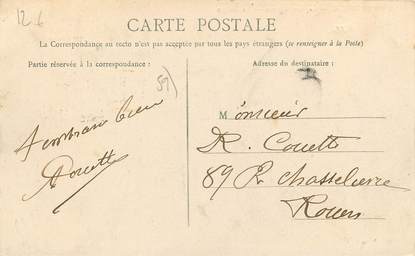 12 6
CARTE POSTALE
La Correspondance au recto n'est pas acceptée par tous les pays étrangers (se renseigner à la Poste)
Partie réservée à la correspondance :
Adresse du destinataire :
Monsieur
R. Couette
89 R. Chasselievre
Rouen